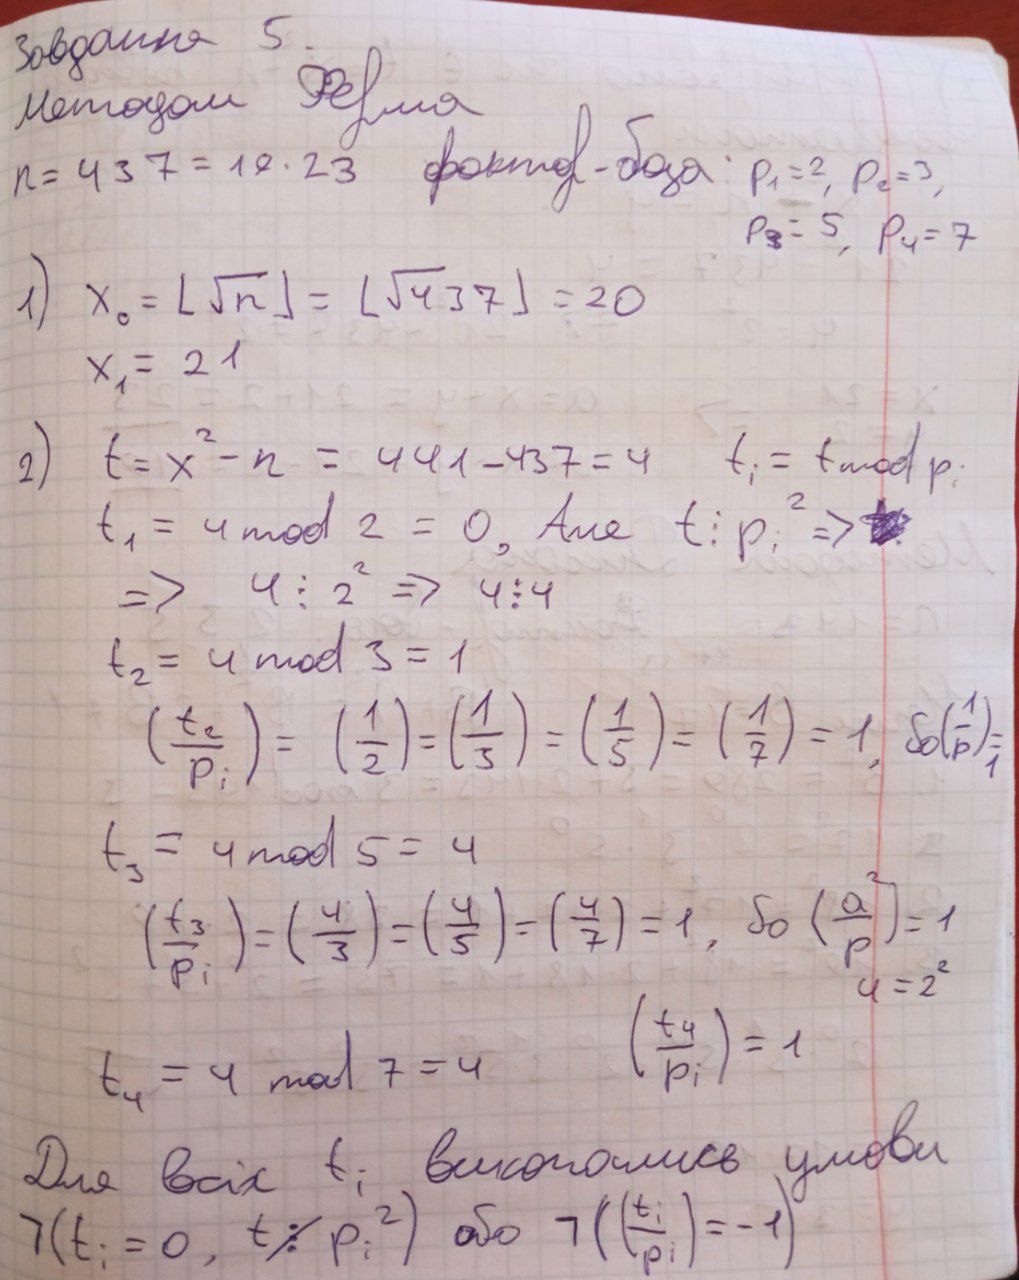 Завдання 5.
Методом Ферма
n = 437 = 19·23 фактор-база: p₁=2, p₂=3,
p₃=5, p₄=7
1) x₀ = ⌊√n⌋ = ⌊√437⌋ = 20
x₁ = 21
2) t = x² - n = 441 - 437 = 4 tᵢ = t mod pᵢ
t₁ = 4 mod 2 = 0, Але t⋮pᵢ² =>
=> 4⋮2² => 4⋮4
t₂ = 4 mod 3 = 1
(t₂/pᵢ) = (1/2) = (1/3) = (1/5) = (1/7) = 1, бо (1/p) = 1
t₃ = 4 mod 5 = 4
(t₃/pᵢ) = (4/3) = (4/5) = (4/7) = 1, бо (a²/p) = 1
4 = 2²
t₄ = 4 mod 7 = 4 (t₄/pᵢ) = 1
Для всіх tᵢ виконались умови
¬(tᵢ = 0, t⋮̸pᵢ²) або ¬((tᵢ/pᵢ) = -1)